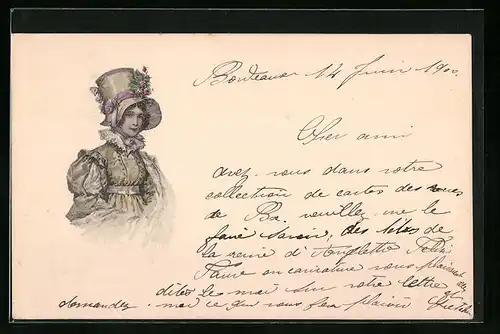 Bordeaux 14 Juin 1900
Cher ami
avez-vous dans votre
collection de cartes des
de Bx. veuillez me le
faire savoir, des têtes de
la reine d'Angleterre
Faure en caricature vous plaisent
dites le moi sur votre lettre et
demandez-moi ce qui vous fera plaisir